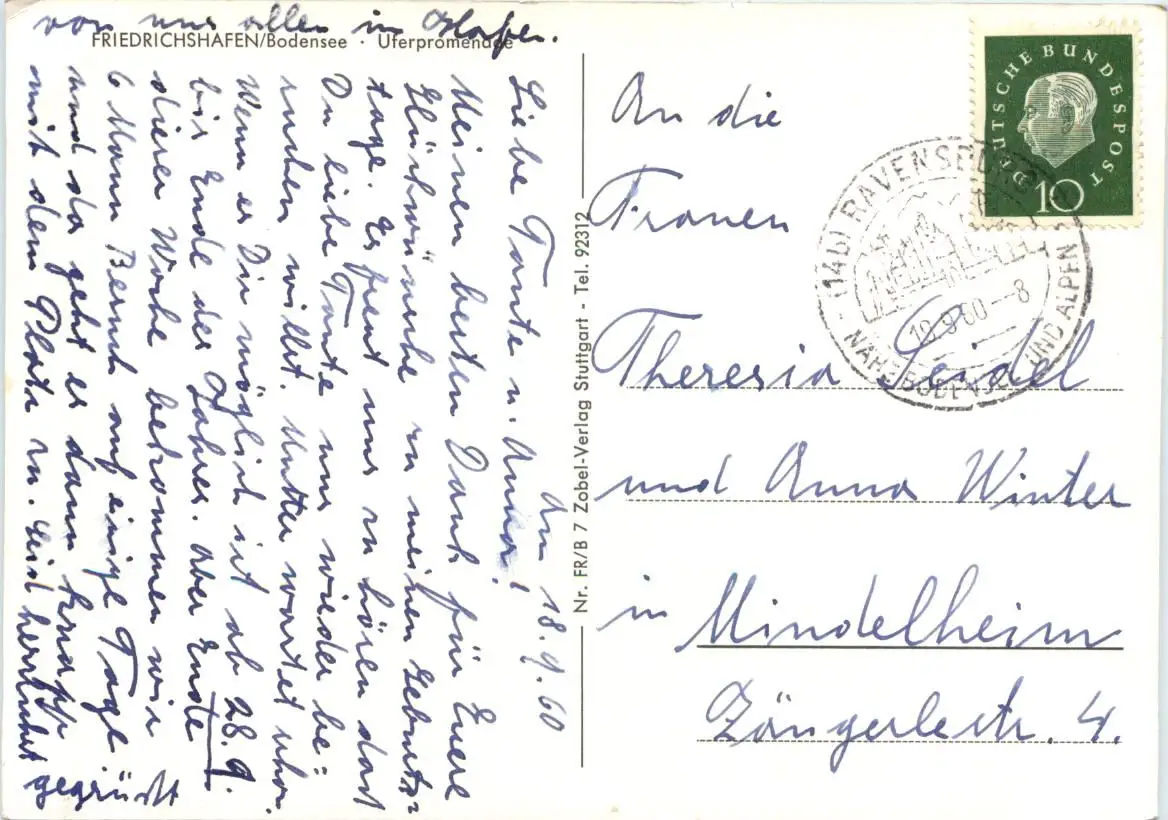 FRIEDRICHSHAFEN/Bodensee · Uferpromenade
Am 18.9.60
Liebe Tante u. Anna!
Meinen besten Dank für Euere
Glückwünsche zu meinen Geburts=
tage. Es freut uns zu hören dass
Du liebe Tante uns wieder be=
suchen willst. Mutter wartet schon.
Wenn es Dir möglich ist ab 28.9.
bis Ende des Jahres. Aber Ende
dieser Woche bekommen wir
6 Mann Besuch auf einige Tage
und da geht es dann knapp
mit dem Platz zu. Seid herzlichst
gegrüsst
von uns allen in
Nr. FR/B 7 Zobel-Verlag Stuttgart - Tel. 92312
An die
Frauen
Theresia Seidel
und Anna Winter
in Mindelheim
Zängerlestr. 4.
DEUTSCHE BUNDESPOST
10
(14b) RAVENSBURG
19.9.60--8
NAHE BODENSEE UND ALPEN